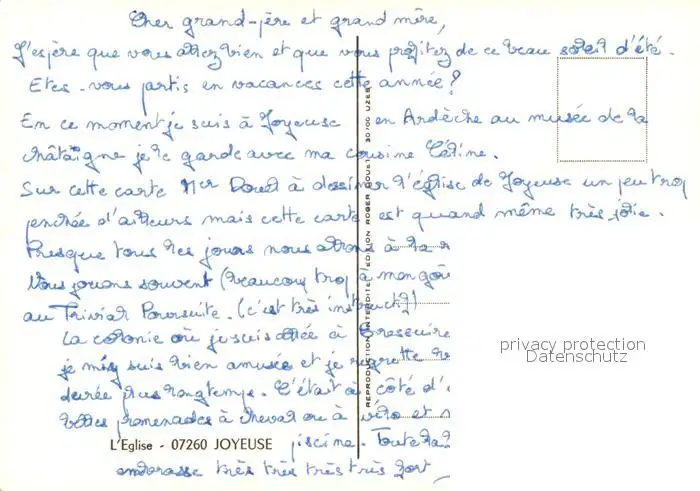 Cher grand-père et grand mère,
J'espère que vous allez bien et que vous profitez de ce beau soleil d'été.
Etes-vous partis en vacances cette année?
En ce moment je suis à Joyeuse en Ardèche au musée de la
châtaigne je le garde avec ma cousine Céline.
Sur cette carte Mr Doued à dessiner l'église de Joyeuse un peu trop
penchée d'ailleurs mais cette carte est quand même très jolie.
Presque tous les jours nous allons à la r
Nous jouons souvent (beaucoup trop à mon goû
au Trivial Poursuite. (c'est très instructif)
La colonie où je suis allée à Bressuire
je m'y suis bien amusée et je regrette
durée plus longtemps. C'était à côté d'
belles promenades à cheval ou à vélo et
piscine. Toute la
embrasse très très très très fort
L'Eglise - 07260 JOYEUSE
REPRODUCTION INTERDITE / EDITION ROGER DOUET 30700 UZES
privacy protection
Datenschutz